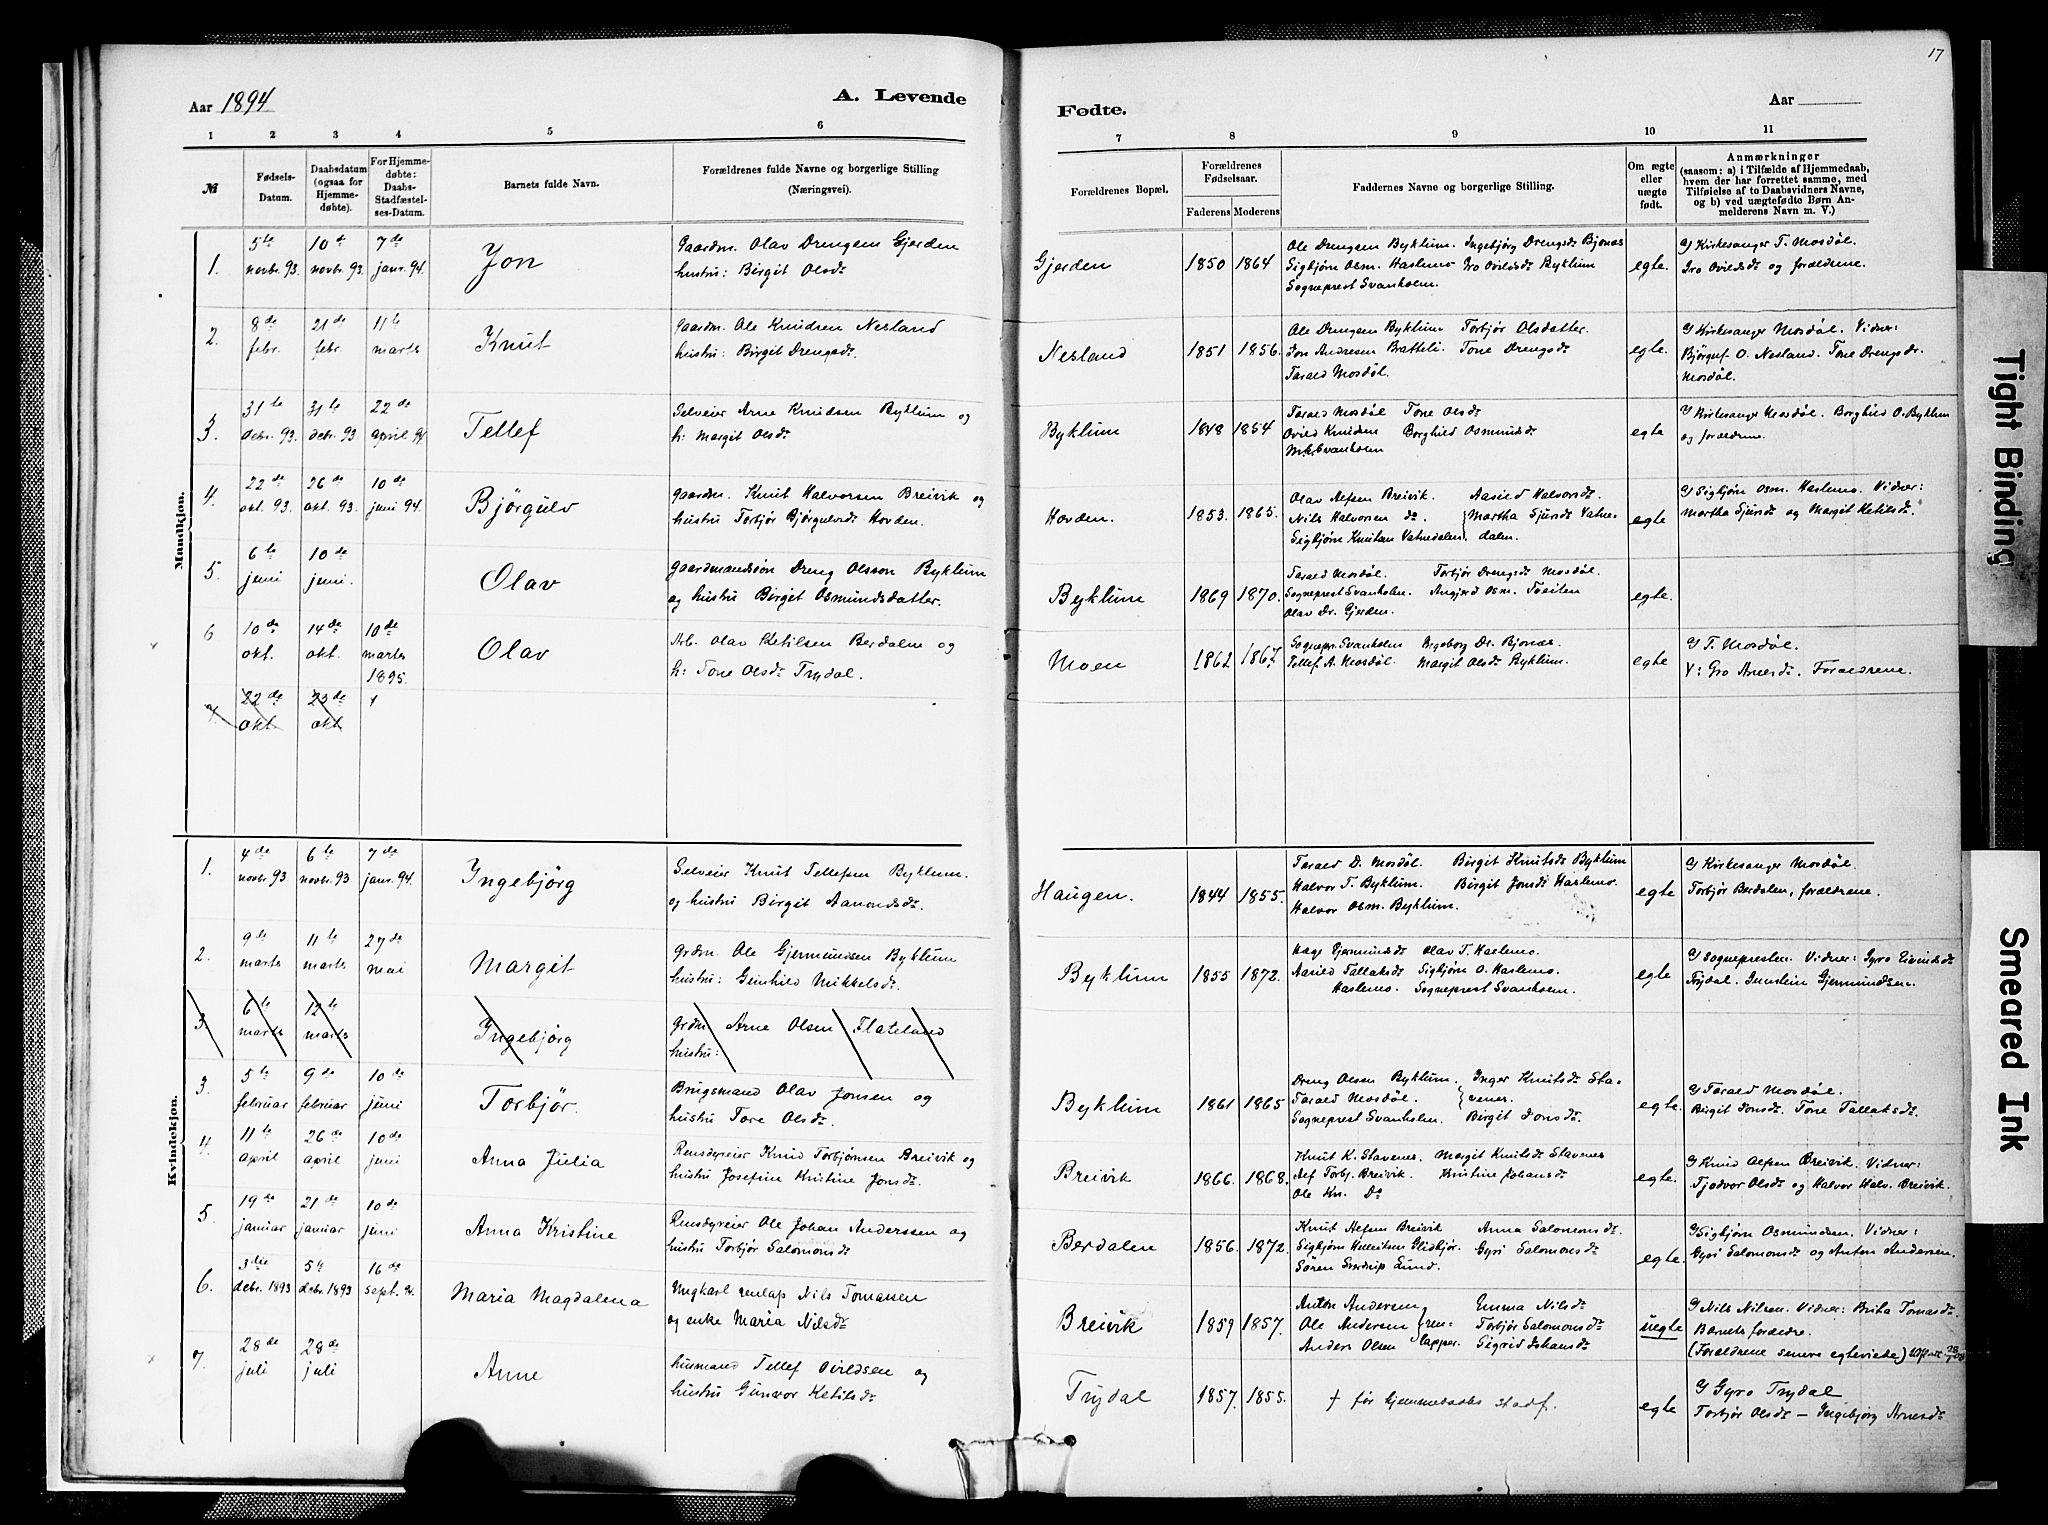 17
Aar 1894
A. Levende
Fødte.
Aar
1 2 3 4 5 6 7 8 9 10 11
№
Fødsels-
Datum.
Daabsdatum
(ogsaa for
Hjemme-
døbte).
For Hjemme-
døbte:
Daabs-
Stadfæstel-
ses-Datum.
Barnets fulde Navn.
Forældrenes fulde Navne og borgerlige Stilling
(Næringsvei).
Forældrenes Bopæl.
Forældrenes
Fødselsaar.
Faderens Moderens
Faddernes Navne og borgerlige Stilling.
Om ægte
eller
uægte
født.
Anmærkninger
(saasom: a) i Tilfælde af Hjemmedaab,
hvem der har forrettet samme, med
Tilføielse af to Daabsvidners Navne,
og b) ved uægtefødte Børn An-
melderens Navn m. V.)
Mandkjøn.
1.
5te
novbr. 93.
10de
novbr. 93.
7de
janr. 94.
Jon
Gaardm. Olav Drengsen Gjerden
hustru: Birgit Olsdr
Gjerden
1850 1864
Ole Drengsen Byklum. Ingebjørg Drengsdr Bjones
Sigbjørn Osm. Haslemo Gro Ovildsdr Byklum
Sogneprest Svanholm.
egte.
Kirkesanger T. Mosdøl.
Gro Ovildsdr og forældrene.
2.
8de
febr.
21de
febr.
11te
marts
Knut
Gaardm. Ole Knudsen Nesland
hustru: Birgit Drengsdr.
Nesland
1851 1856.
Ole Drengsen Byklum Torbjør Olsdatter.
Jon Andresen Bratteli. Tone Drengsdr
Tarald Mosdøl.
egte.
Kirkesanger Mosdøl. Vidner:
Bjørguf O. Nesland. Tone Drengsdr.
Mosdøl.
3.
31te
debr. 93.
31te
debr. 93
22de
april 94
Tellef
Selveier Arne Knudsen Byklum og
h: Margit Olsdr
Byklum
1848 1854
Tarald Mosdøl Tone Olsdr
Ovild Knudsen Borghild Osmundsdr
Svanholm
egte
Kirkesanger Mosdøl. Borghild O. Byklum
og forældrene.
4.
22de
okt. 93.
26de
okt. 93.
10de
juni 94.
Bjørgulv
Gaardm. Knut Halvorsen Breivik og
hustru Torbjør Bjørgulvsdr Hovden.
Hovden.
1853. 1865.
Olav Alfsen Breivik. Aasild Halvorsdr.
Nils Halvorsen do. Martha Sjursdr Vatne-
Sigbjørn Knutsen Vatnedalen dalen.
egte
Sigbjørn Osm. Haslemo. Vidner:
Martha Sjursdr og Margit Ketilsdr.
5.
6te
juni
10de
juni.
Olav
Gaardmandssøn Dreng Olsson Byklum
og hustru Birgit Osmundsdatter.
Byklum
1869 1870.
Tarald Mosdøl. Torbjør Drengsdr Mosdøl.
Sogneprest Svanholm. Angjerd Osm. Tveiten
Olav Dr. Gjerden.
egte.
6
10de
okt.
14de
okt.
10de
marts
1895.
Olav
Arb. Olav Ketilsen Berdalen og
h: Tone Olsdr Trydal.
Moen
1862 1867.
Sognepr. Svanholm Ingeborg Dr. Bjones
Tellef A. Mosdøl Margit Olsdr Byklum.
egte
T. Mosdøl.
V: Gro Arnesdr. Forældrene.
7.
22de
okt.
23de
okt.
Kvindekjøn.
1.
4de
novbr. 93
6te
novbr. 93
7de
janr. 94.
Ingebjörg
Selveier Knut Tellefsen Byklum.
og hustru Birgit Aamundsdr.
Haugen.
1844 1855.
Tarald D. Mosdøl. Birgit Knutsdr Byklum
Halvor T. Byklum. Birgit Jonsdr Haslemo.
Halvor Osm. Byklum.
egte
Kirkesanger Mosdøl.
Torbjør Berdalen, forældrene.
2.
9de
marts
11te
marts
27de
mai
Margit
Grdm. Ole Gjermundsen Byklum
hustru: Gunhild Mikkelsdr.
Byklum
1855 1872.
Gjermundsdr Olav T. Haslemo.
Aasild Tallaksdr Sigbjørn O. Haslemo.
Haslemo. Sogneprest Svanholm.
egte
Sognepresten. Vidner: Gyro Eivindsdr
Trydal. Gunstein Gjermundsen.
3.
6te
marts
12te
marts
Ingebjørg
Grdm Arne Olsen Flateland
hustru:
3.
5te
februar
9de
februar
10de
juni
Torbjör.
Brugsmand Olav Jonsen og
hustru Tore Olsdr.
Byklum
1861 1865
Dreng Olsen Byklum. Inger Knutsdr Sta-
Tarald Mosdøl. venes.
Sogneprest Svanholm. Birgit Jonsdr.
egte.
Tarald Mosdøl.
Birgit Jonsdr. Tone Tallaksdr.
4.
11te
april
26de
april
10de
juni
Anna Julia
Rensdyreier Knud Torbjørnsen Breivik og
hustru Josefine Kristine Jonsdr.
Breivik
1866. 1868.
Knut K. Stavenes. Margit Knutsdr Stavenes
Alf Torbj. Breivik. Kristine Johansdr
Ole Kn. Do
egte.
Knud Alfsen Breivik. Vidner:
Tjodvor Olsdr og Halvor Halv. Breivik.
5.
19de
januar
21de
januar
10de
juni
Anna Kristine
Rensdyreier Ole Johan Anderssen og
hustru Torbjør Salomonsdr
Berdalen
1856. 1872.
Knut Alfsen Breivik Anna Salomonsdr
Sigbjørn Gyri Salomonsdr
Søren Sverdrup Lund.
egte.
Sigbjørn Osmundsen. Vidner:
Gyri Salomonsdr og Anton Andersen.
6.
3die
debr. 1893
5te
debr. 1893
16de
sept. 94.
Maria Magdalena
Ungkarl renlap Nils Tomassen
og enke Maria Nilsdr
Breivik
1859 1857.
Anton Andersen Emma Nilsdr
Ole Andersen ren- Torbjør Salomonsdr
Anders Olsen lapper. Sigrid Johansdr
uegte
Nils Nilsen. Vidner: Brita Tomasdr.
Barnets forældre.
(Forældrene senere egteviede)
7.
28de
juli
28de
juli
Anne
husmand Tellef Ovildsen og
hustru Gunvor Ketilsdr
Trydal
1857. 1855.
† før hjemmedaabs stadf.
egte
Gyro Trydal
Torbjør Olsdr — Ingebjørg Arnesdr
Tight Binding
Smeared Ink